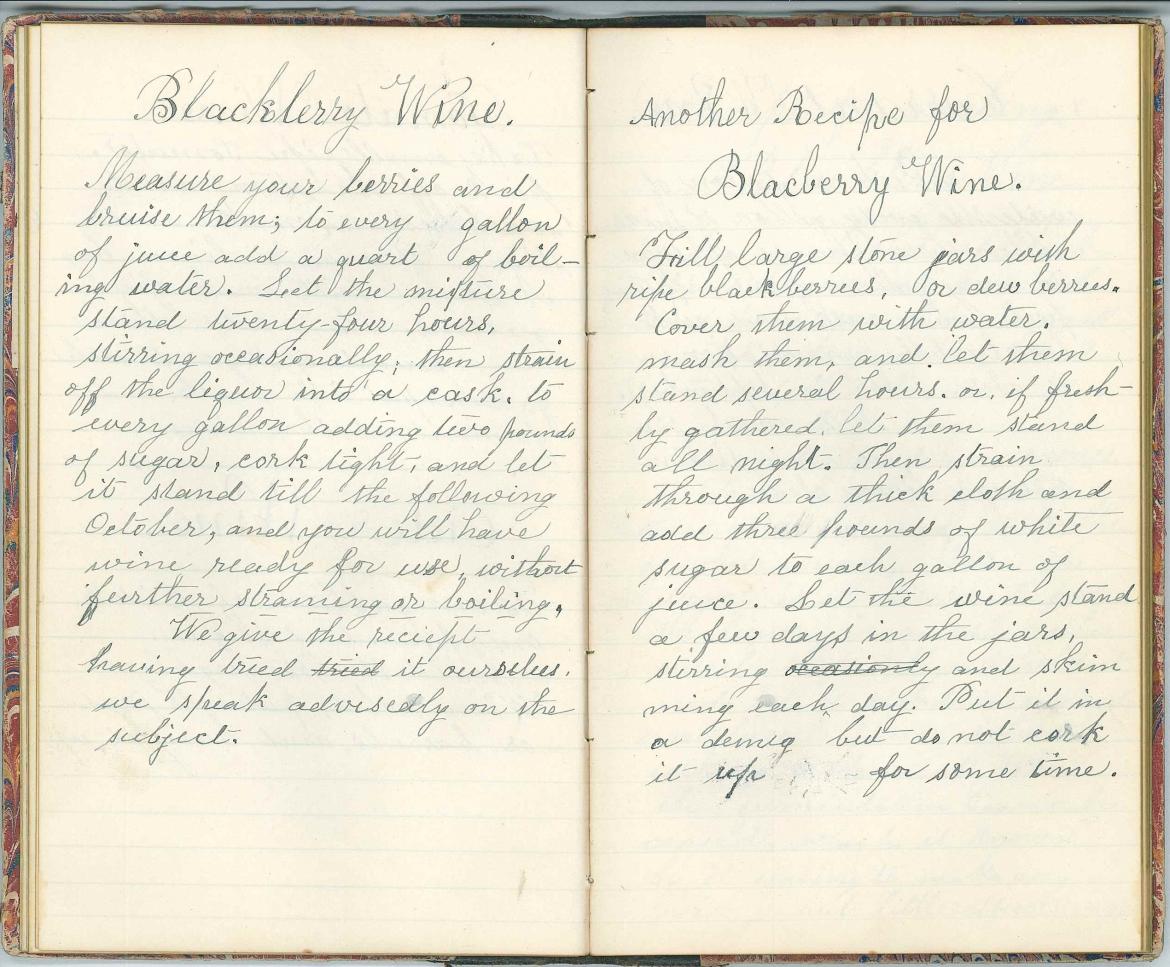 Blackberry Wine.
Measure your berries and
bruise them; to every gallon
of juice add a quart of boil-
ing water. Let the mixture
stand twenty-four hours,
stirring occasionally; then strain
off the liquor into a cask. to
every gallon adding two pounds
of sugar, cork tight, and let
it stand till the following
October, and you will have
wine ready for use, without
further straining or boiling.
We give the reciept
having tried tried it ourselves.
we speak advisedly on the
subject.
Another Recipe for
Blacberry Wine.
Fill large stone jars with
ripe blackberries, or dew berries.
Cover them with water.
mash them, and let them
stand several hours. or, if fresh-
ly gathered, let them stand
all night. Then strain
through a thick cloth and
add three pounds of white
sugar to each gallon of
juice. Let the wine stand
a few days in the jars,
stirring occasionly and skim
ming each day. Put it in
a demig but do not cork
it up for some time.